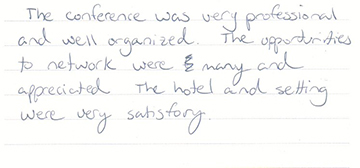 The conference was very professional
and well organized. The opportunities
to network were many and
appreciated The hotel and setting
were very satisfory.